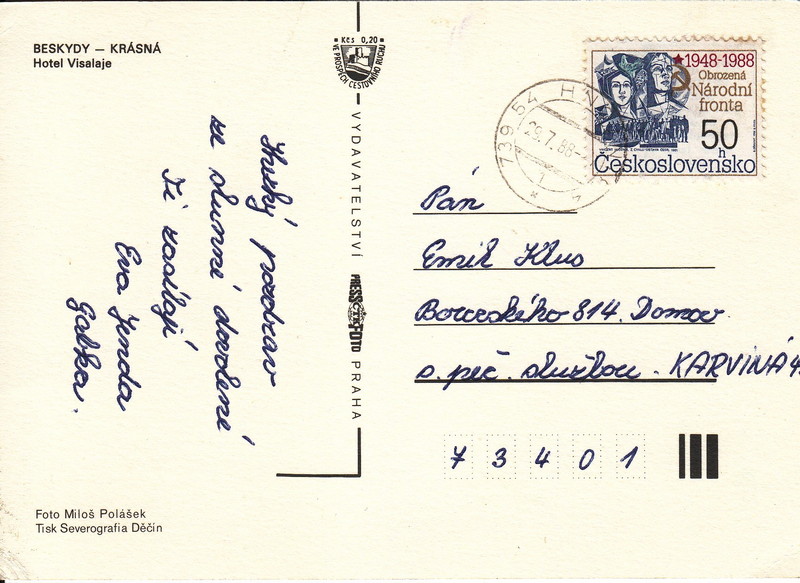 BESKYDY — KRÁSNÁ
Hotel Visalaje
Kčs 0,20
VE PROSPĚCH CESTOVNÍHO RUCHU
VYDAVATELSTVÍ PRESSFOTO PRAHA
ČTK
1948-1988
Obrozená
Národní
fronta
50
h
Československo
739 54 HN
29.7.88
1
Hezký pozdrav
ze slunné dovolené
Ti zasílají
Eva Jenda
Gabka.
Pán
Emil Klus
Borovského 814. Domov
s. peč. službou. KARVINÁ 4
7 3 4 0 1
Foto Miloš Polášek
Tisk Severografia Děčín